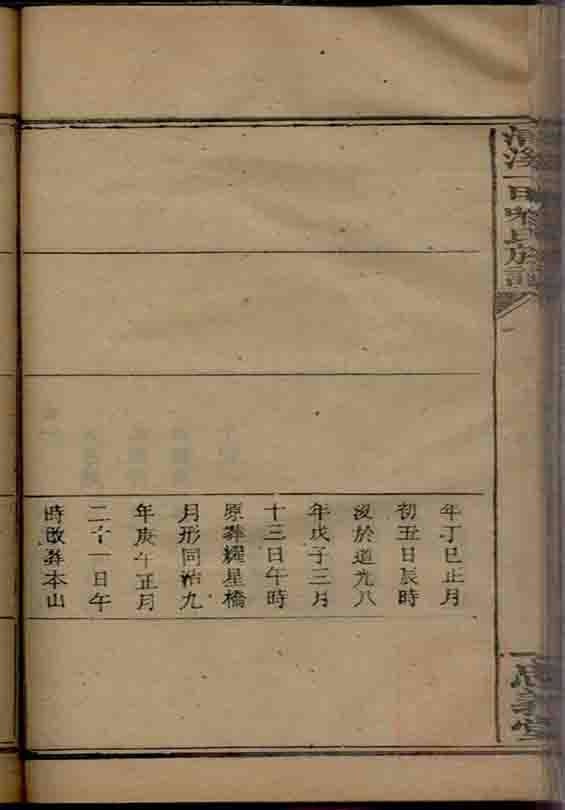 年丁巳正月
初五日辰時
沒於道光八
年戊子三月
十三日午時
原葬耀星橋
月形同治九
年庚午正月
二十一日午
時改葬本山
氏族譜
堂